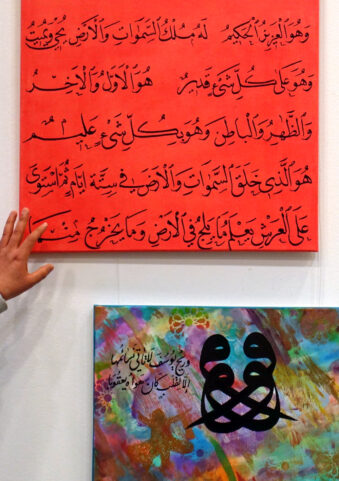 وَهُوَ الْعَزِيزُ الْحَكِيمُ لَهُ مُلْكُ السَّمَوَاتِ وَالْأَرْضِ يُحْيِ وَيُمِيتُ
وَهُوَ عَلَى كُلِّ شَيْءٍ قَدِيرٌ هُوَ الْأَوَّلُ وَالْآخِرُ
وَالظَّهِرُ وَالْبَاطِنُ وَهُوَ بِكُلِّ شَيْءٍ عَلِيمٌ
هُوَ الَّذِي خَلَقَ السَّمَوَاتِ وَالْأَرْضَ فِي سِتَّةِ أَيَّامٍ ثُمَّ اسْتَوَى
عَلَى الْعَرْشِ يَعْلَمُ مَا يَلِجُ فِي الْأَرْضِ وَمَا يَخْرُجُ مِنْهَا
وريح يوسف لا تأتي نسائمها
إلا لقلب كان هواه يعقوبا